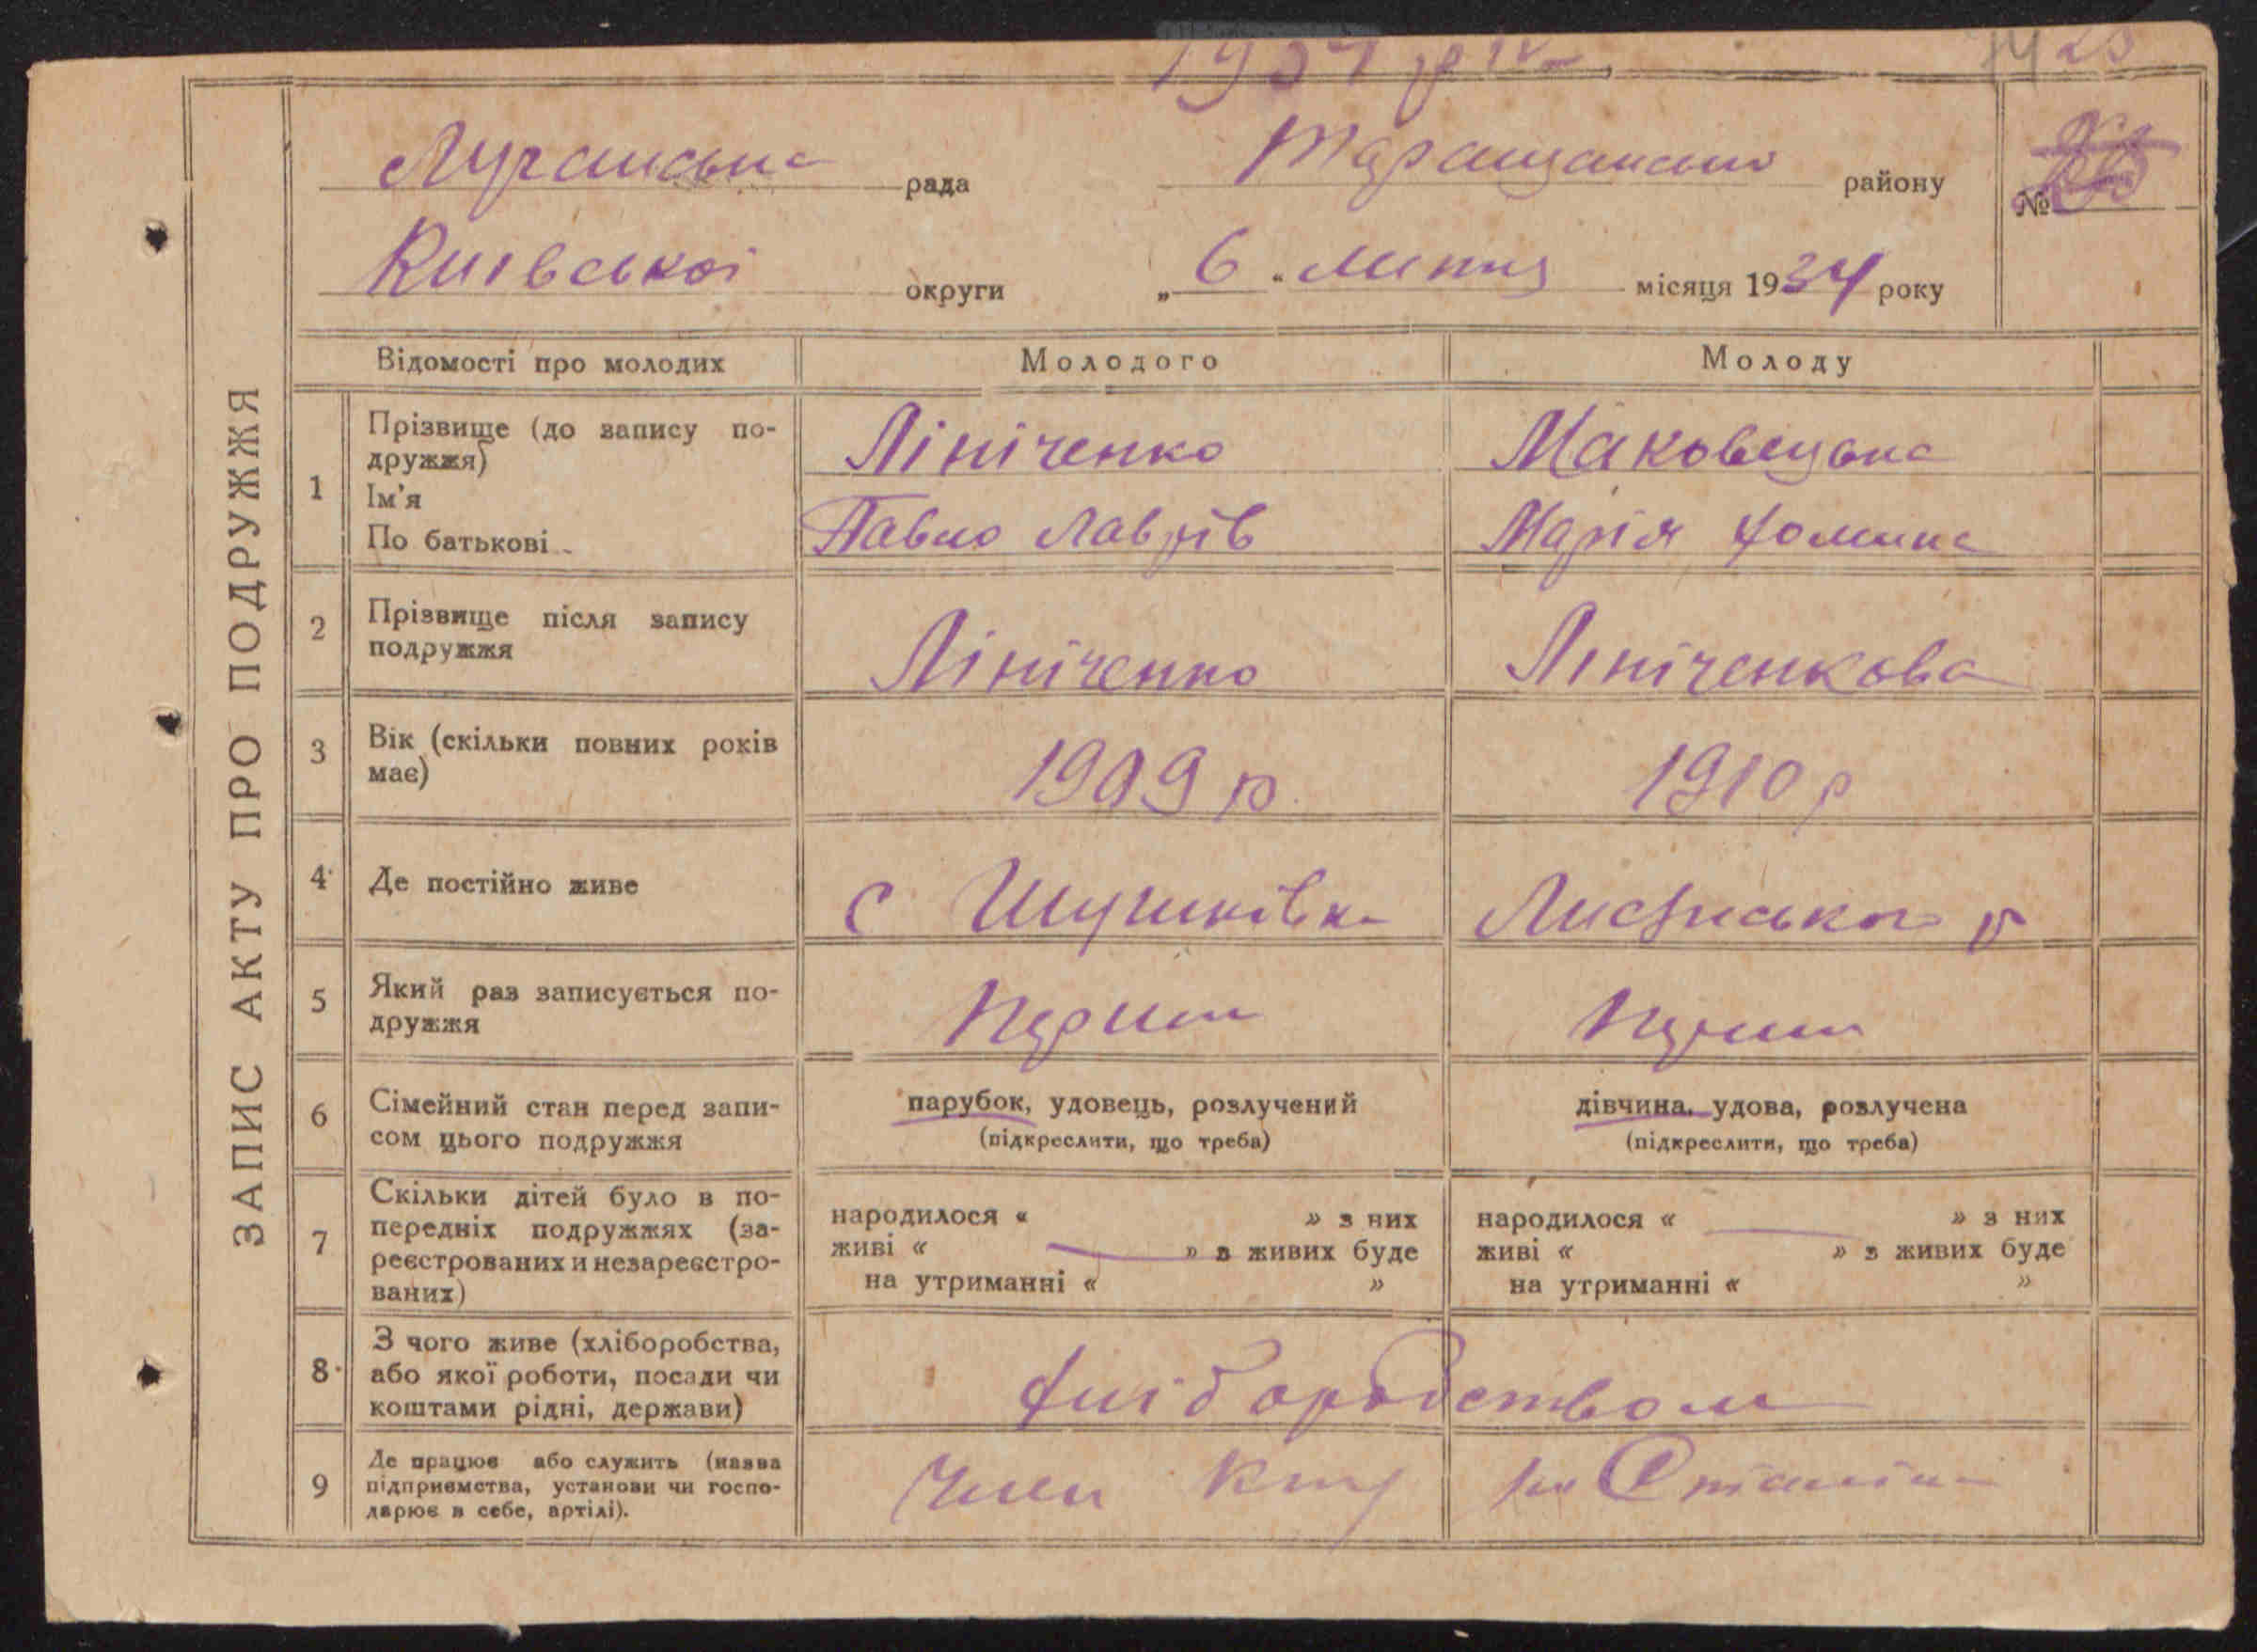 1934 рік
ЗАПИС АКТУ ПРО ПОДРУЖЖЯ
Лучанська рада Таращансько району №
Київської округи „6" липня місяця 1934 року
Відомості про молодих Молодого Молоду
1 Прізвище (до запису по-
дружжя) Лініченко Маковецька
Ім'я
По батькові Павло Лаврів Марія Хомина
2 Прізвище після запису
подружжя Лініченко Лініченкова
3 Вік (скільки повних років
має) 1909 р. 1910 р
4 Де постійно живе с Шушківка Лисянсько р
5 Який раз записується по-
дружжя Перши Перши
6 Сімейний стан перед запи-
сом цього подружжя
парубок, удовець, розлучений
(підкреслити, що треба)
дівчина, удова, розлучена
(підкреслити, що треба)
7 Скільки дітей було в по-
передніх подружжях (за-
реєстрованих и незареєстро-
ваних)
народилося « » з них
живі « » з живих буде
на утриманні « »
народилося « » з них
живі « » з живих буде
на утриманні « »
8 З чого живе (хліборобства,
або якої роботи, посади чи
коштами рідні, держави)
хліборобством
9 Де працює або служить (назва
підприємства, установи чи госпо-
дарює в себе, артілі).
Член Сталіна